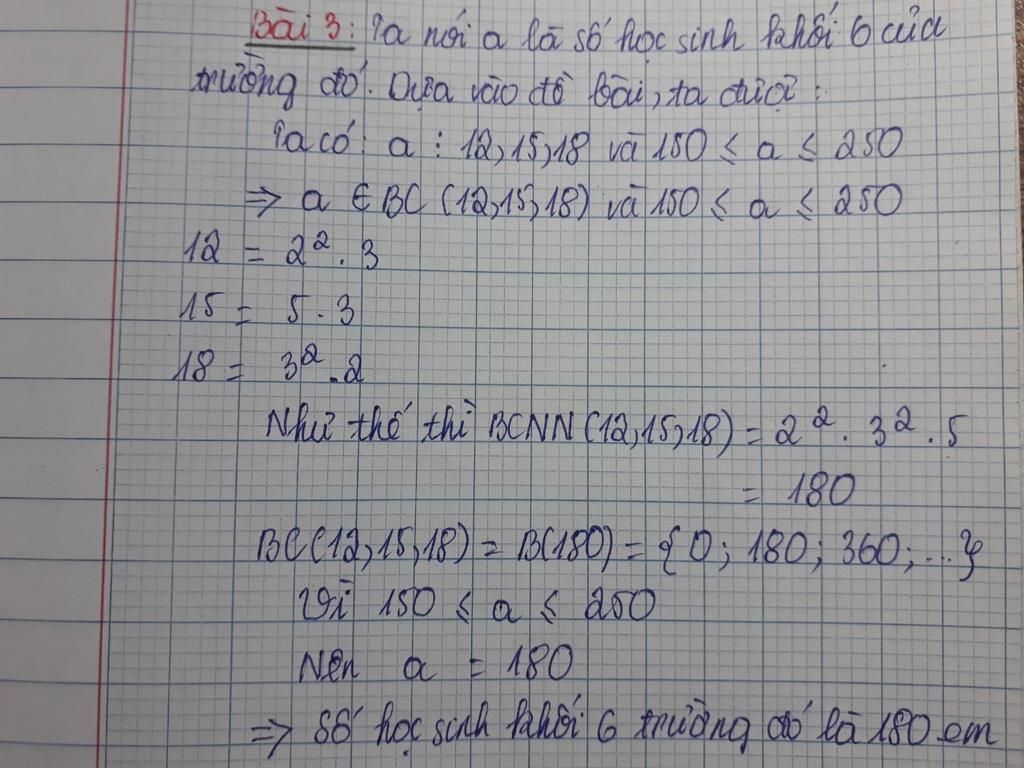 Bài 3: Ta nói a là số học sinh khối 6 của
trường đó. Dựa vào đề bài, ta được:
Ta có: a ⋮ 12, 15, 18 và 150 ≤ a ≤ 250
⇒ a ∈ BC (12, 15, 18) và 150 ≤ a ≤ 250
12 = 2² . 3
15 = 5 . 3
18 = 3² . 2
Như thế thì BCNN (12, 15, 18) = 2² . 3² . 5
= 180
BC (12, 15, 18) = B(180) = {0; 180; 360; ...}
Vì 150 ≤ a ≤ 250
Nên a = 180
⇒ Số học sinh khối 6 trường đó là 180 em